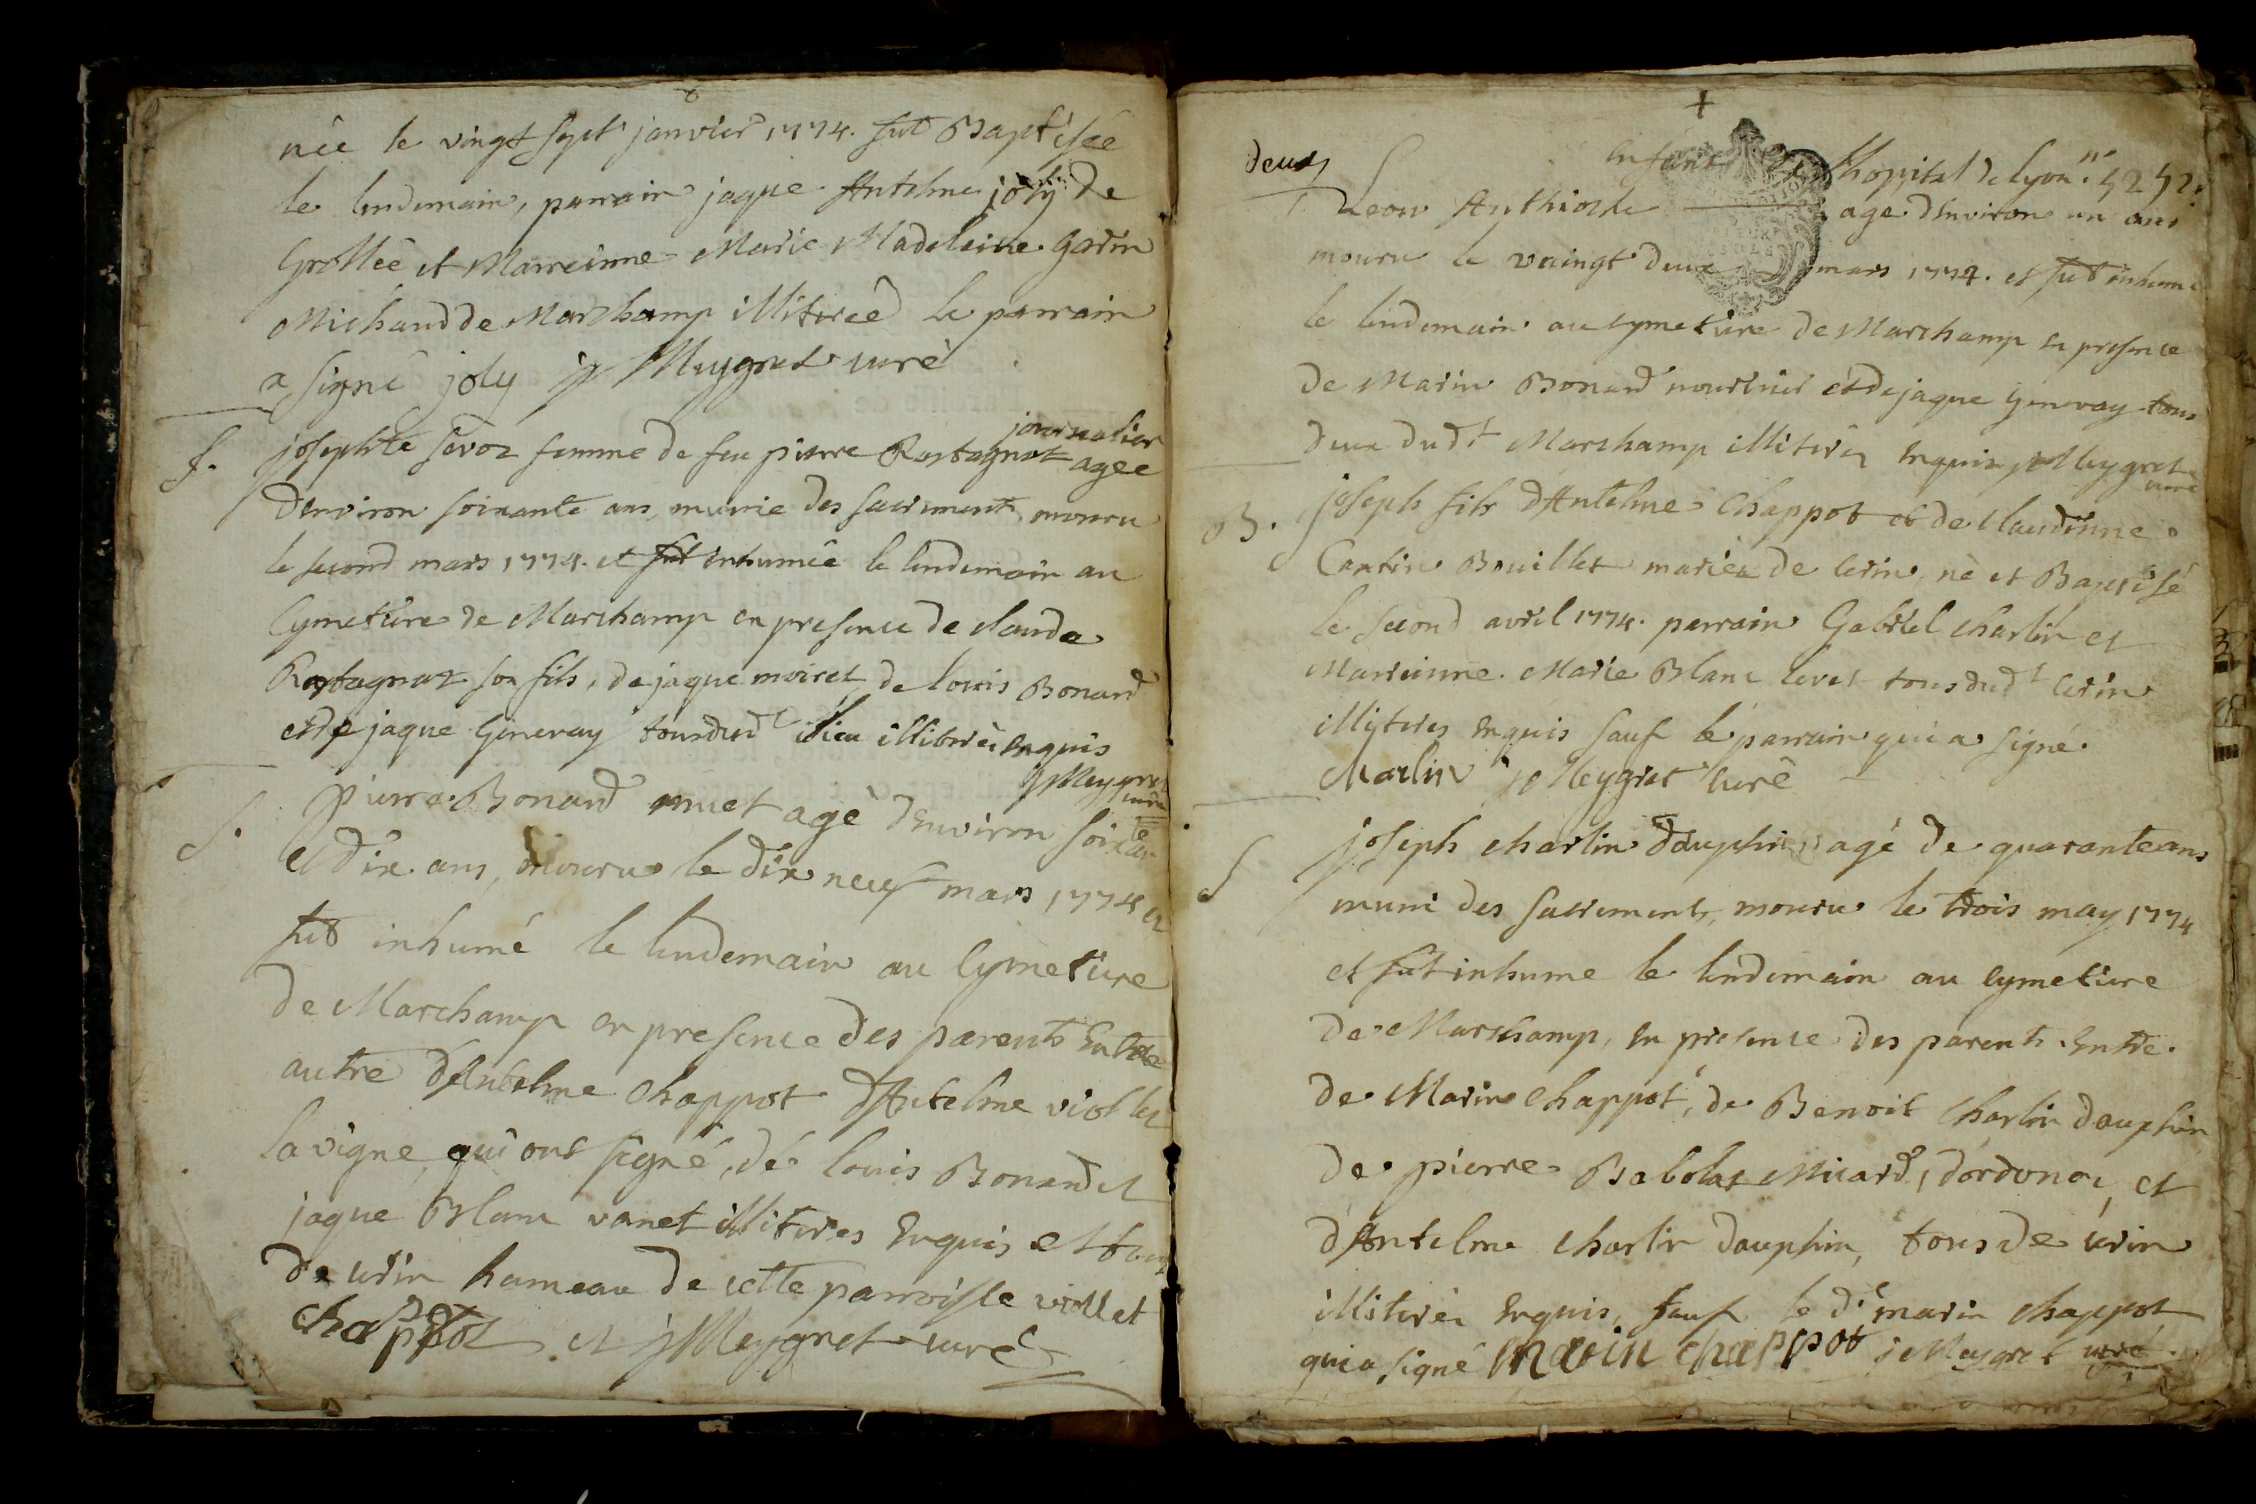 née le vingt sept janvier 1774. fut Baptisée
le lendemain, parrain jaque Antelme joly de
Grollée et Marreinne Marie Madeleine Gorin
Michaud de Marchamp illiterée le parrain
a signé joly jp Meygret curé
S. josephte Savoz femme de feu pierre Rostagnat journalier agée
d'environ soixante ans, munie des sacrements, mouru
le second mars 1774. et fut inhumée le lendemain au
Cymetiere de Marchamp en presence de claude
Rostagnat son fils, de jaque moiret, de louis Bonard
et de jaque Genevay tous dudt lieu illiterés enquis
jp Meygret curé
S. Pierre Bonard muet agé d'environ soixante
et dix ans, mouru le dix neuf mars 1774 et
fut inhumé le lendemain au Cymetiere
de Marchamp en presence des parents Entre
autre d'Antelme Chappot d'Antelme viollet
lavigne, qui ont signé, de louis Bonard et
jaque Blanc vanet illiteres Enquis et tous
de cerin hameau de cette parroisse viollet
chappot et jp Meygret curé
deux
Enfant de l'hopital de lyon. no 4242.
Leon Anthioche age d'Environ un ans
mouru le vaingt deux mars 1774. et fut inhumé
le lendemain au cymetiere de Marchamp en presence
de Marin Bonard nourricier et de jaque Genevay tous
deux dudt Marchamp illiterés enquis jp Meygret
curé
B. joseph fils d'Antelme Chappot et de Claudinne
Cantin Bouillet mariéz de Cerin, né et Baptisé
le second avril 1774. parrain Gabriel charlin et
Marreinne Marie Blanc levet tous dudt Cerin
illyteres enquis sauf le parrain qui a signé.
Charlin jp Meygret curé
S joseph charlin dauphin, agé de quarante ans
muni des sacrements, mouru le trois may 1774
et fut inhume le lendemain au cymetiere
de Marchamp, en presence des parents Entre
de Marin Chappot, de Benoit Charlin dauphin,
de pierre Babolat Micard, d'ordonaz, et
d'Antelme charlin dauphin, tous de cerin
illiterés Enquis, sauf le dit marin chappot
qui a signé marin chappot jp Meygret curé